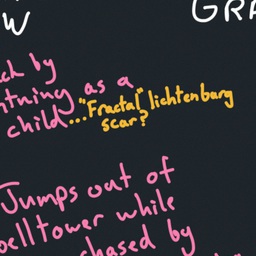 W
GRA
ck by
ntning as a
child... "Fractal" lichtenburg
scar?
Jumps out of
belltower while
chased by